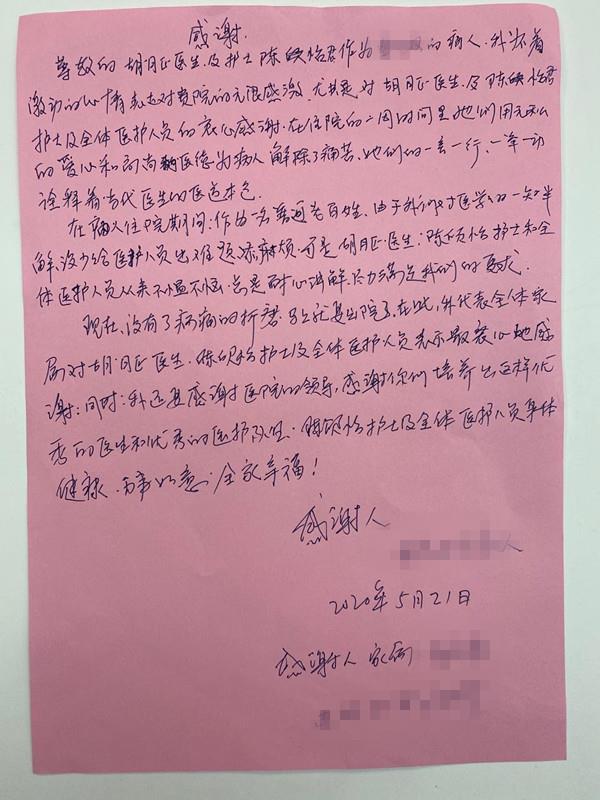 感谢.
尊敬的胡月正医生及护士陈 怡君作为 的病人.我怀着
激动的心情表达对贵院的无限感激.尤其是对胡月正医生.及陈 怡君
护士及全体医护人员的衷心感谢.在住院的一周时间里她们用无私
的爱心和高尚 医德为病人解除了痛苦.她们的一言一行、一举一动
诠释着当代医生的医道本色.
在病人住院期间:作为一名普通老百姓.由于我们对医学的一知半
解.没少给医护人员出难题添麻烦.可是胡月正医生:陈 怡护士和全
体医护人员从来不愠不恼.总是耐心讲解.尽力满足我们的要求.
现在.没有了病痛的折磨.马上就要出院了.在此.我代表全体家
属对胡月正医生.陈 怡护士及全体医护人员表示最衷心地感
谢:同时:我还要感谢医院的领导.感谢你们培养出这样优
秀的医生和优秀的医护 . 怡护士及全体医护人员集体
健禄.万事如意.全家幸福!
感谢人
2020年5月21日
感谢人家属